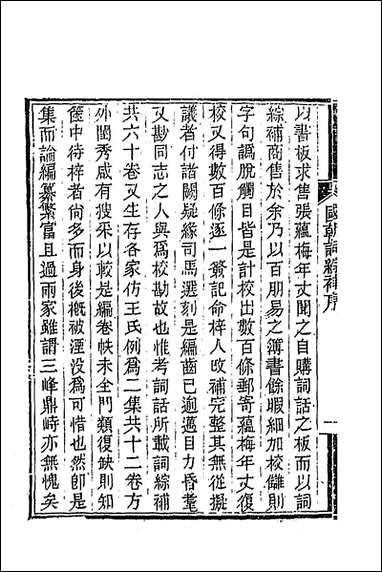 國朝詞綜補序
一
以書板求售張蘊梅年丈聞之自購詞話之板而以詞
綜補商售於余乃以百朋易之簿書餘暇細加校讎則
字句譌脫觸目皆是計校出數百條郵寄蘊梅年丈復
校又得數百條逐一簽記命梓人改補完整其無從擬
議者付諸闕疑緣司馬選刻是編齒已逾邁目力昏耄
又尠同志之人與爲校勘故也惟考詞話所載詞綜補
共六十卷又生存各家仿王氏例爲二集共十二卷方
外閨秀咸有搜采以較是編卷帙未全門類復缺則知
篋中待梓者尚多而身後槪被湮沒爲可惜也然卽是
集而論編纂繁富且過兩家雖謂三峰鼎峙亦無愧矣